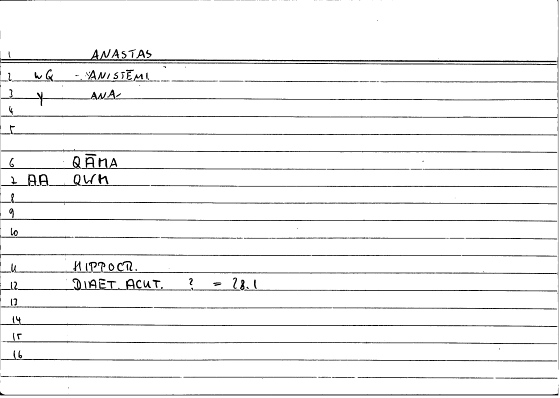 1 ANASTAS
2 WG - ANISTĒMI
3 Y ANA-
4
5
6 QĀMA
7 AA QWM
8
9
10
11 HIPPOCR.
12 DIAET. ACUT. ? = 28.1
13
14
15
16